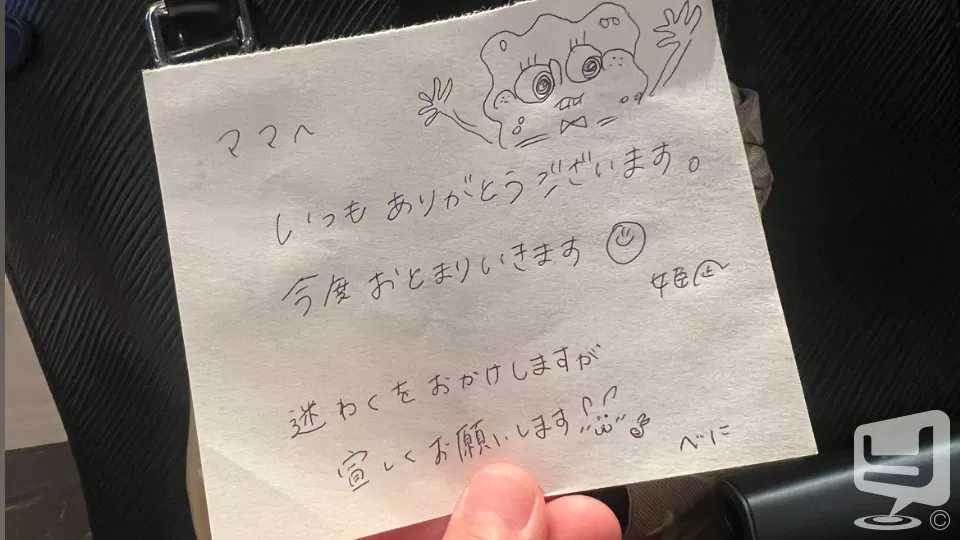 ママへ
いつもありがとうございます。
今度おとまりいきます
姫
迷わくをおかけしますが
宜しくお願いします
べに
©